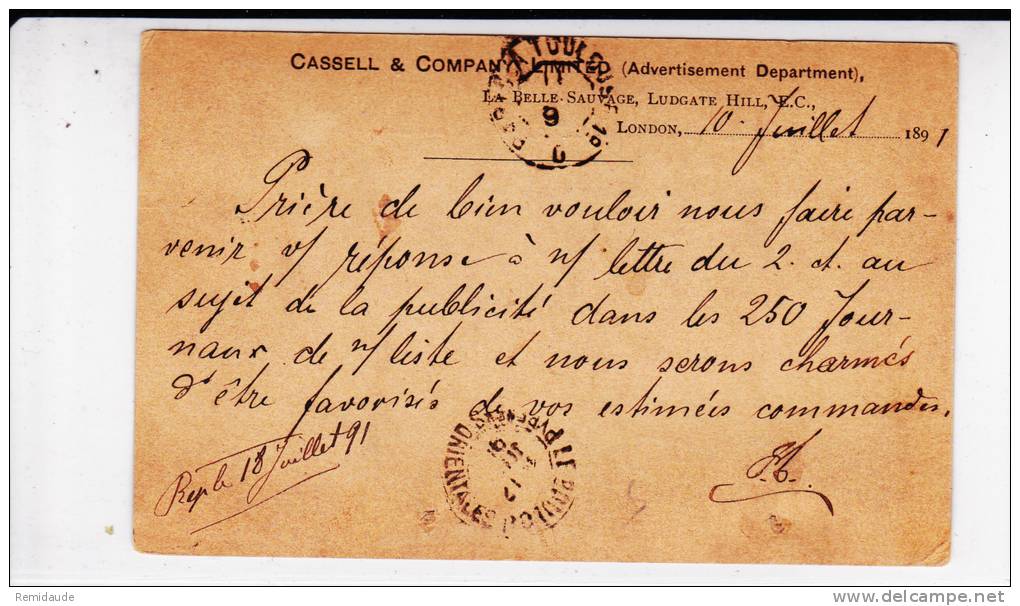 CASSELL & COMPANY, LIMITED, (Advertisement Department),
LA BELLE SAUVAGE, LUDGATE HILL, E.C.,
LONDON, 10 Juillet 1891
Prière de bien vouloir nous faire par-
venir v/ réponse à n/ lettre du 2. ct. au
sujet de la publicité dans les 250 Jour-
naux de n/ liste et nous serons charmés
d'être favorisés de vos estimées commandes.
Rep le 18 Juillet 91
TOULOUSE
LE BOULOU
PYRENEES ORIENTALES
Remidaude
delcampe.net